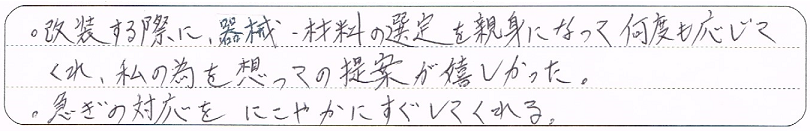 。改装する際に、器械・材料の選定を親身になって何度も応じて
くれ、私の為を想っての提案が嬉しかった。
。急ぎの対応を にこやかにすぐしてくれる。